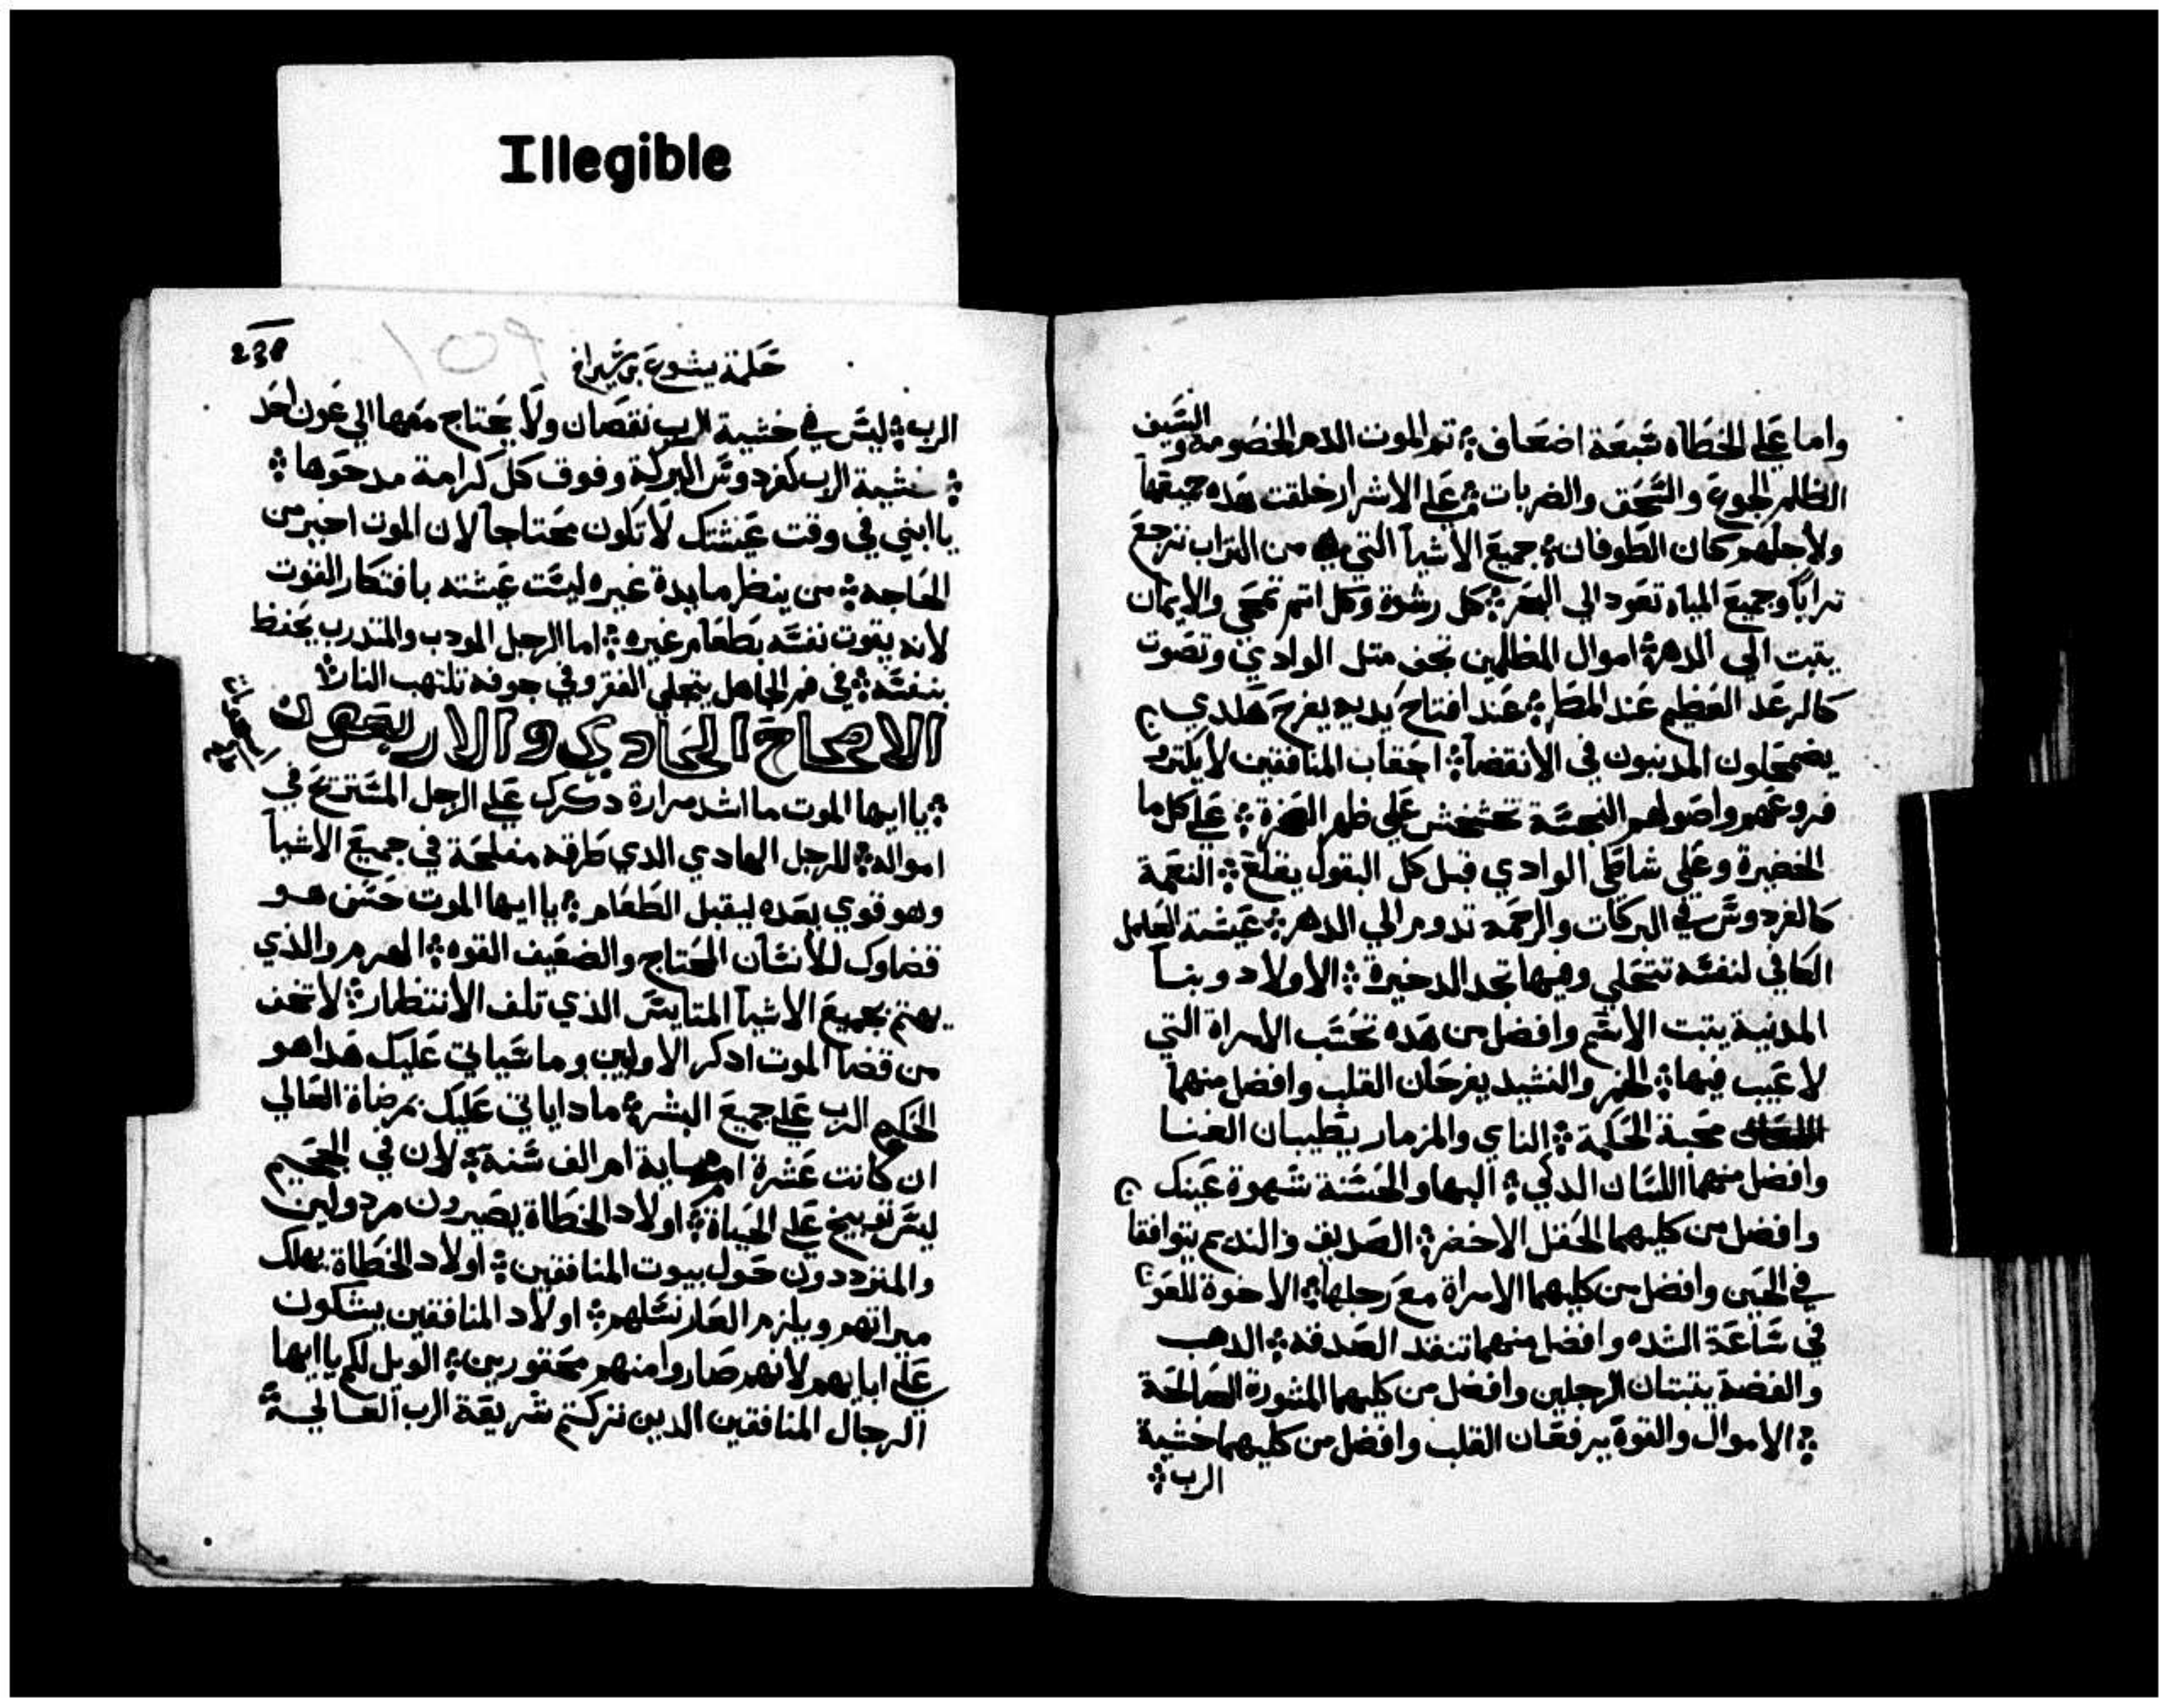 Illegible
واما علي الخطاه سبعة اضعاف ܀ تم الموت الدم الخصومه والسيف
الظلم الجوع والسحق والضربات ܀ علي الاشرار خلقت هذه جميعها
ولاجلهم كان الطوفان ܀ جميع الاشيا التي من التراب ترجع
ترابا وجميع المياه تعود الي البحر ܀ كل رشوة وكل اتم تمحي والايمان
يتبت الي الدهر ܀ اموال الظالمين تجف متل الوادي وتصوت
كالرعد العظيم عند المطر ܀ عند افتتاح يديه يفرح هكدي
يضمحلون المدنبون في الانقضا ܀ احقاب المنافقين لا يكتروا
فروعهم واصولهم النجسة تخشخش علي ظهر الصخرة ܀ علي كل ما
الخضيرة وعلي شاطي الوادي قبل كل البقول يقلع ܀ النعمة
كالفردوس في البركات والرحمه تدوم الي الدهر ܀ عيشة العامل
الكافي لنفسه تتحلي وفيها تجد الدخيرة ܀ الاولاد وبنا
المدنية يتبت الاسم وافضل من هده تحسب الامراة التي
لا عيب فيها ܀ الخمر والنشيد يفرحان القلب وافضل منهما
محبة الحكمة ܀ الناي والمزمار يطيبان الغنا
وافضل منهما اللسان الدكي ܀ البها والحسنة شهوة عينك
وافضل من كليهما الحقل الاخضر ܀ الصديق والنديم يتوافقا
في الحين وافضل من كليهما الامراة مع رجلها ܀ الاخوة للعون
في ساعة الشده وافضل منهما تنقد الصدقه ܀ الدهب
والفضة يتبتان الرجلين وافضل من كليهما المشورة الصالحة
܀ الاموال والقوة يرفعان القلب وافضل من كليهما خشية
الرب ܀
238
109
حكمة يشوع بن شيراخ
الرب ܀ ليس في خشية الرب نقصان ولا يحتاج معها الي عون احد
܀ خشية الرب كفردوس البركة وفوق كل كرامة مدحوها ܀
يا ابني في وقت عيشتك لا تكون محتاجا لان الموت اخير من
الحاجه ܀ من ينظر مايدة غيره ليست عيشته بافتكار القوت
لانه يقوت نفسه بطعام غيره ܀ اما الرجل المودب والمتدرب يحفظ
بنفسه ܀ في فم الجاهل يتحلي الفقر وفي جوفه تلتهب النار ܀
الاصحاح الحادي والاربعون
܀ يا ايها الموت ما اشد مرارة دكرك علي الرجل المستريح في
امواله ܀ للرجل الهادي الدي طرقه مفلحة في جميع الاشيا
وهو قوي بعده ليقبل الطعام ܀ يا ايها الموت حسن هو
قضاوك للانسان المحتاج والضعيف القوه ܀ الهرم والذي
يهتم بجميع الاشيا المتايس الذي تلف الانتظار ܀ لا تخف
من قضا الموت ادكر الاولين وما سياتي عليك هدا هو
الحكم الرب علي جميع البشر ܀ مادا ياتي عليك بمرضاة العالي
ان كانت عشرة ام ماية ام الف سنة ܀ لان في الجحيم
ليس توبيخ علي الحياة ܀ اولاد الخطاة يصيرون مردولين
والمترددون حول بيوت المنافقين ܀ اولاد الخطاة يهلك
ميراتهم ويلزم العار نسلهم ܀ اولاد المنافقين يشكون
علي ابايهم لانهم صاروا منهم محقورين ܀ الويل لكم يا ايها
الرجال المنافقين الدين تركتم شريعة الرب العالي ܀